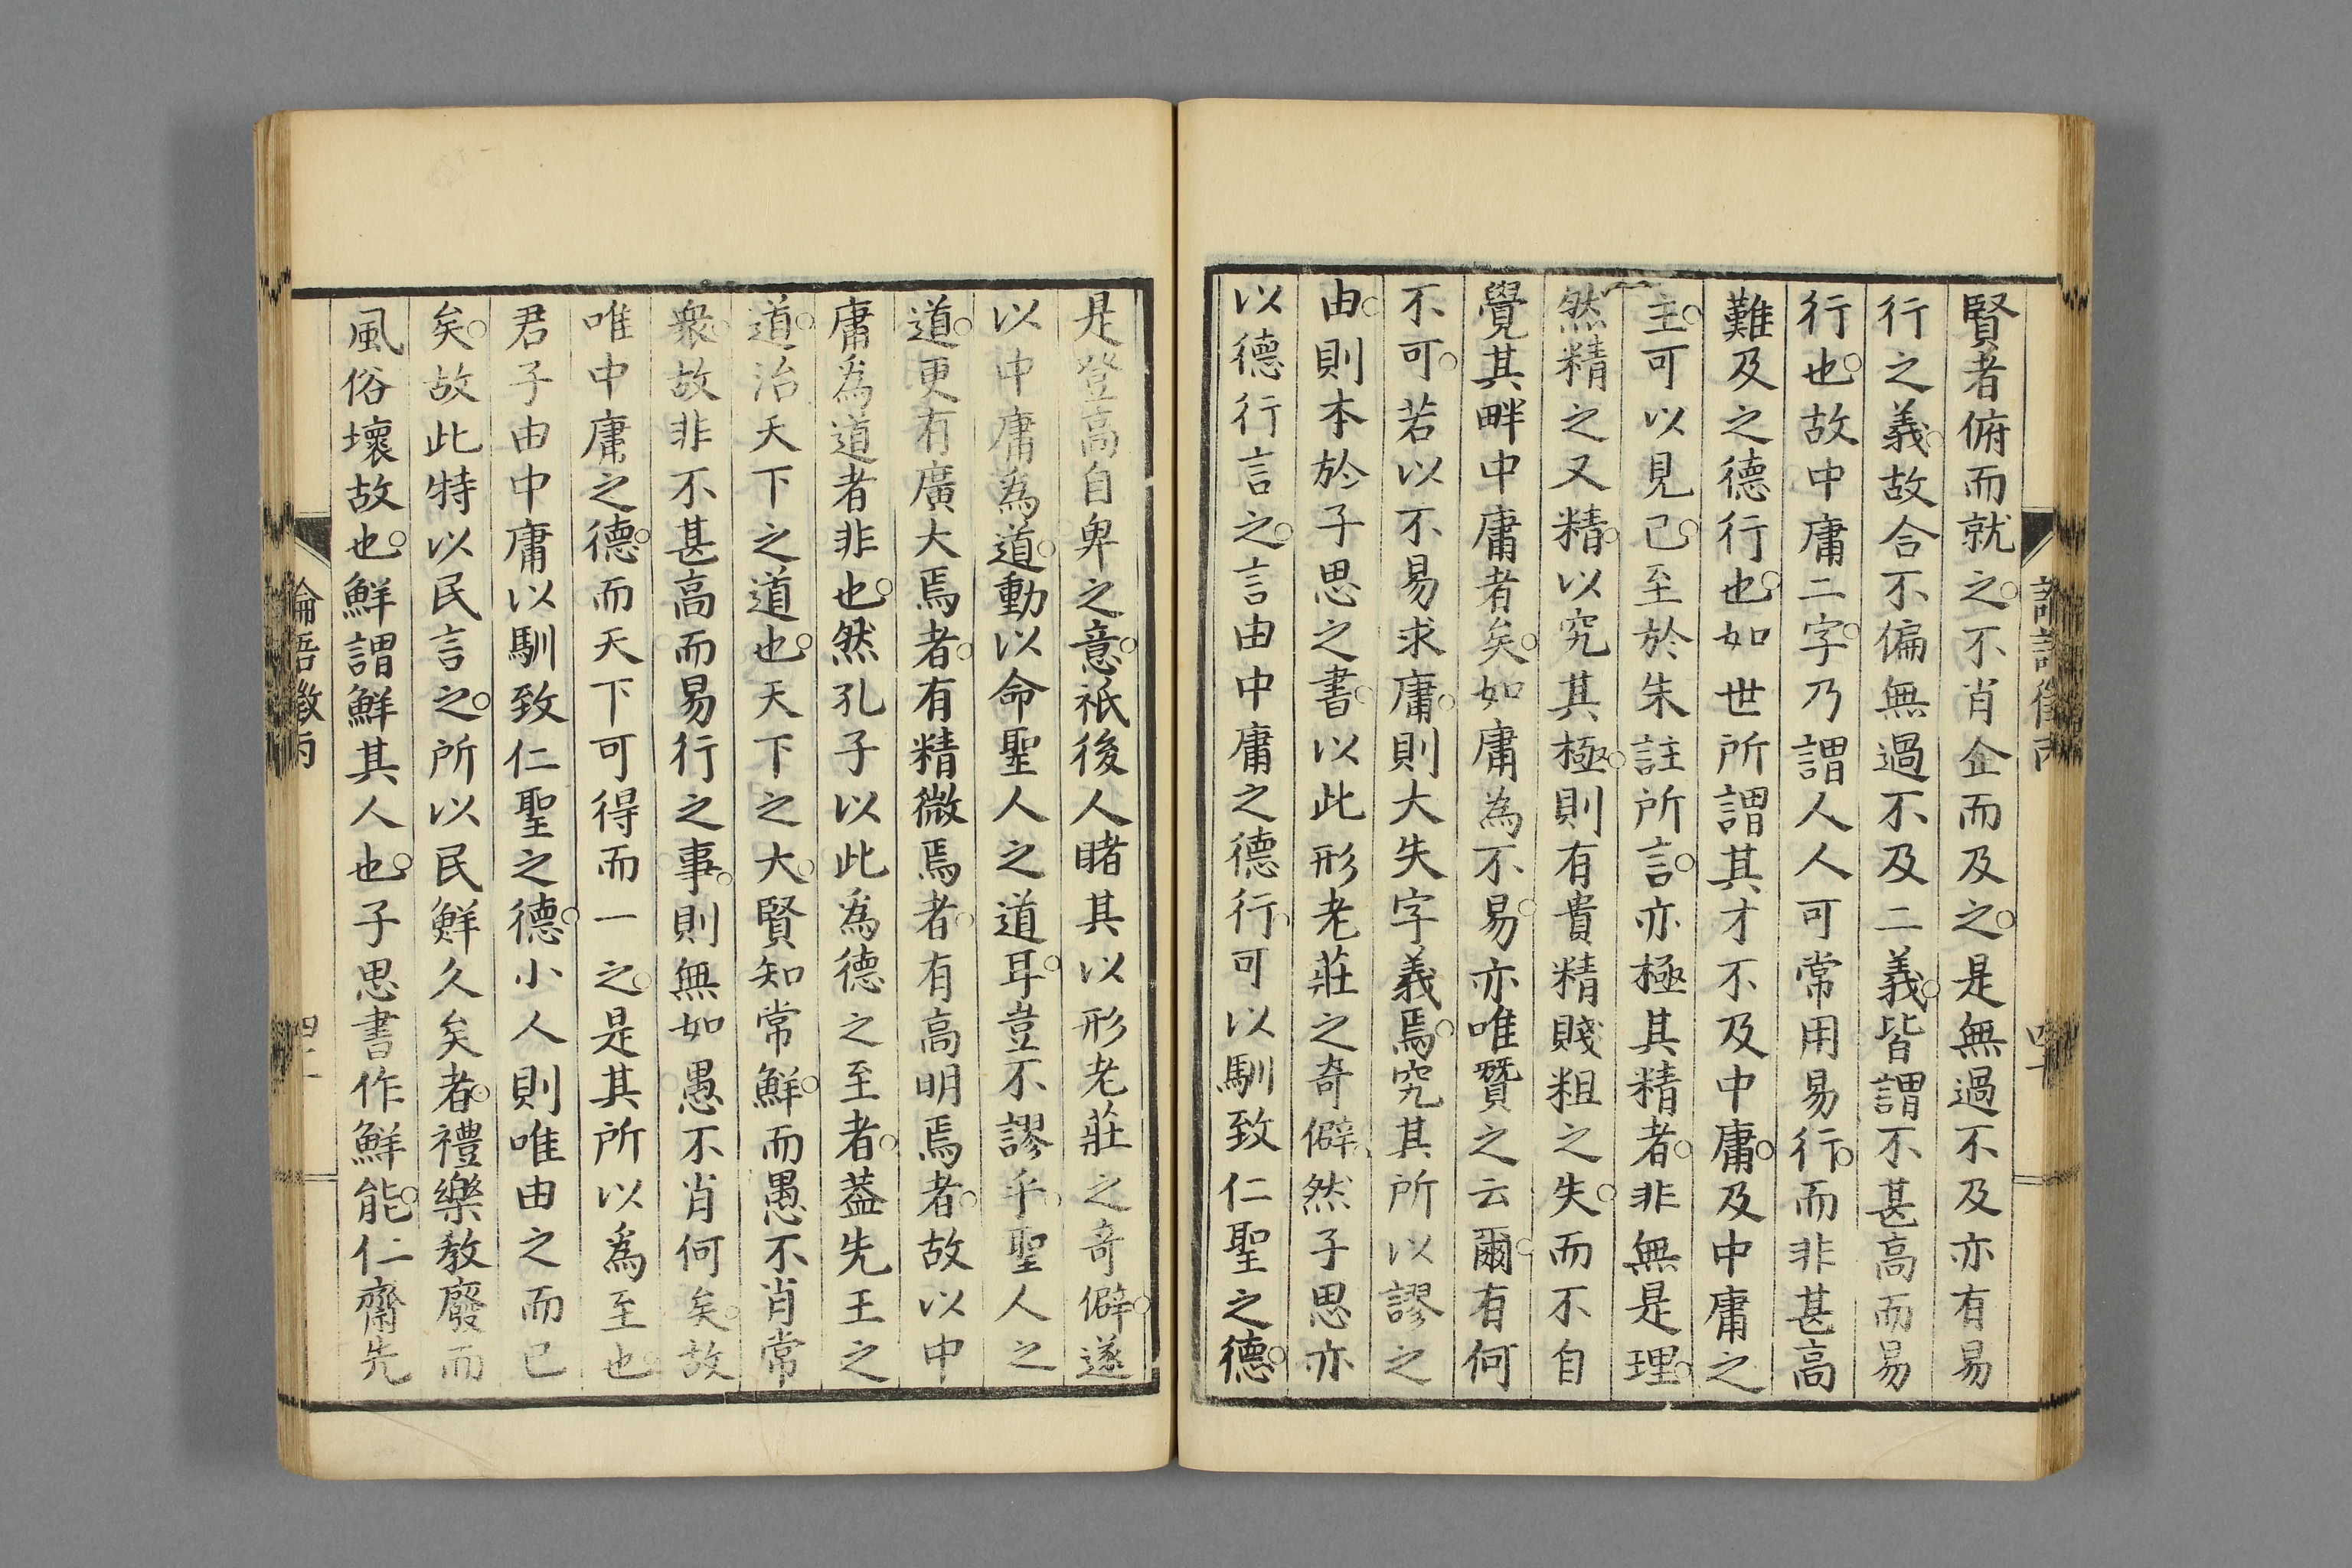 賢者俯而就之。不肖企而及之。是無過不及亦有易
行之義。故合不偏無過不及二義。皆謂不甚高而易
行也。故中庸二字。乃謂人人可常用易行。而非甚高
難及之德行也。如世所謂其才不及中庸。及中庸之
主。可以見已。至於朱註所言。亦極其精者。非無是理。
然精之又精。以究其極。則有貴精賤粗之失。而不自
覺其畔中庸者矣。如庸為不易。亦唯贊之云爾。有何
不可。若以不易求庸。則大失字義焉。究其所以謬之
由。則本於子思之書。以此形老莊之奇僻。然子思亦
以德行言之。言由中庸之德行。可以馴致仁聖之德。
是登高自卑之意。祇後人睹其以形老莊之奇僻。遂
以中庸為道。動以命聖人之道耳。豈不謬乎。聖人之
道。更有廣大焉者。有精微焉者。有高明焉者。故以中
庸為道者非也。然孔子以此為德之至者。蓋先王之
道。治天下之道也。天下之大。賢知常鮮。而愚不肖常
衆。故非不甚高而易行之事。則無如愚不肖何矣。故
唯中庸之德。而天下可得而一之。是其所以為至也。
君子由中庸以馴致仁聖之德。小人則唯由之而已
矣。故此特以民言之。所以民鮮久矣者。禮樂教廢而
風俗壞故也。鮮謂鮮其人也。子思書作鮮能。仁齋先
論語徵丙